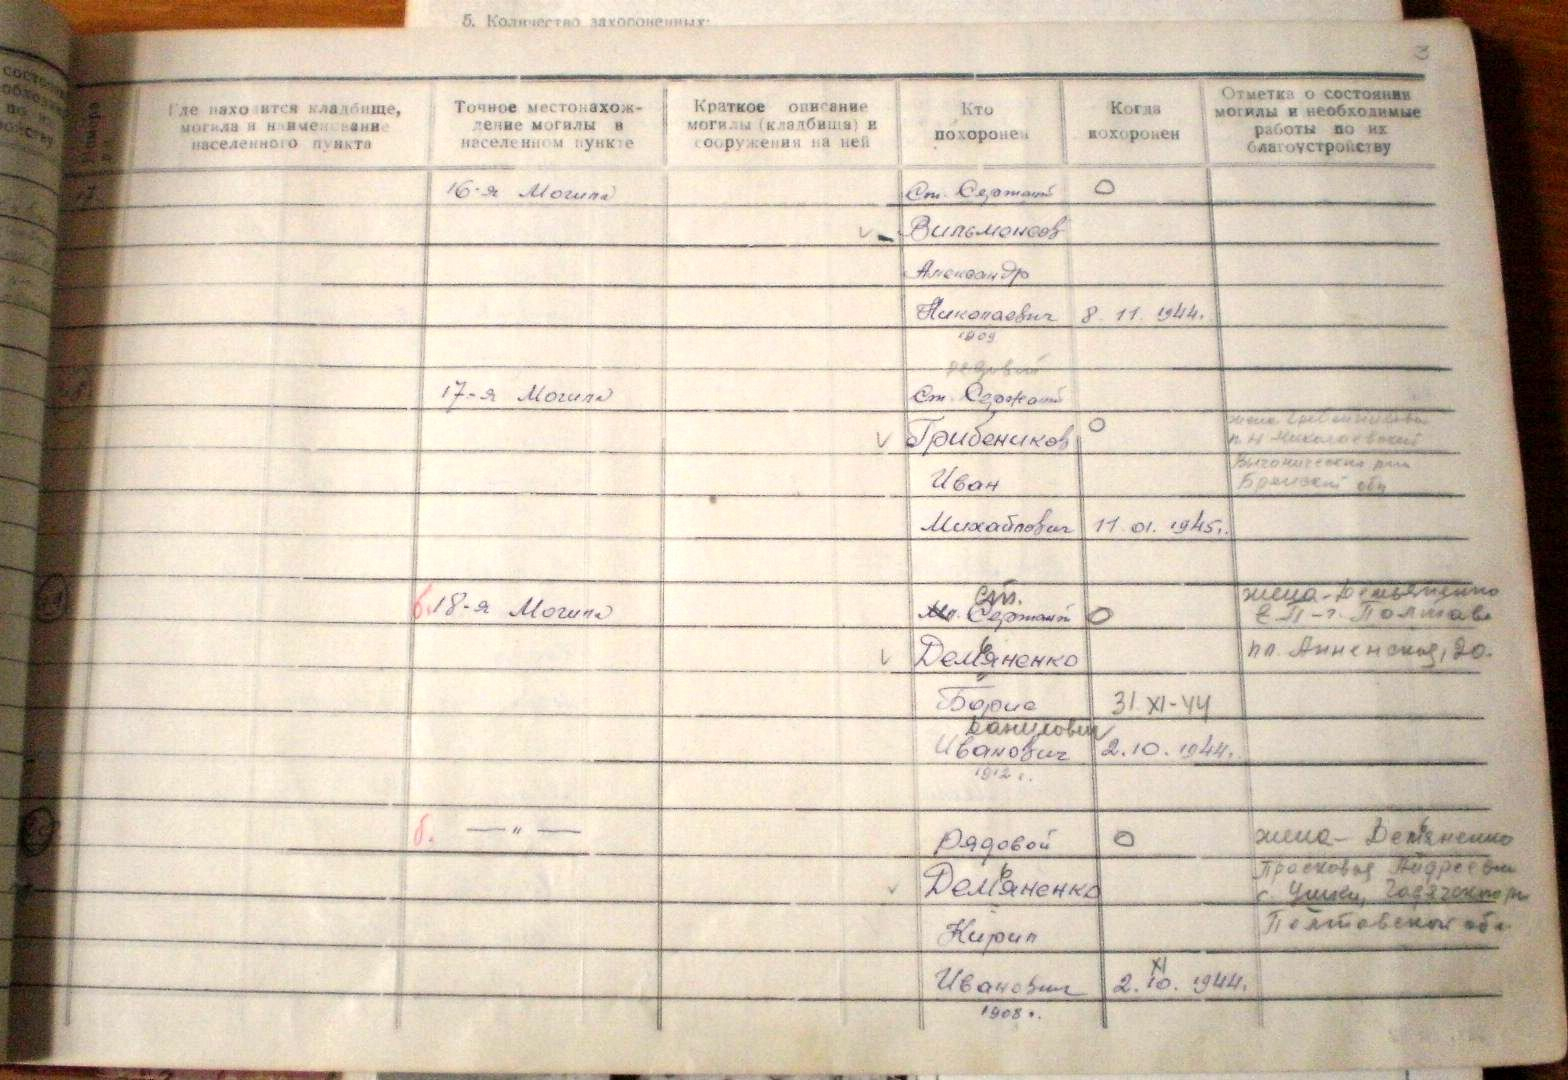 5. Количество захороненных:
3
Где находится кладбище,
могила и наименование
населенного пункта
Точное местонахож-
дение могилы в
населенном пункте
Краткое описание
могилы (кладбища) и
сооружения на ней
Кто
похоронен
Когда
похоронен
Отметка о состоянии
могилы и необходимые
работы по их
благоустройству
16-я Могила
Ст. Сержант
Вильмонсов
Александр
Николаевич 8.11.1944.
1909
рядовой
17-я Могила Ст. Сержант
Грибеников
п. Н Николаевский
Иван
Брянской обл
Михайлович 11.01.1945г.
ст.
жена - Демьяненко
б. 18-я Могила Мл. Сержант
Е.П - г. Полтава
Демьяненко
пл. Анненская, 20.
Борис 31.XI-44
Данилович
Иванович 2.10.1944.
1912 г.
б. — " — Рядовой
жена - Демьяненко
Прасковья Андреевна
Демьяненко
Кирил
Полтавской обл.
XI
Иванович 2.10.1944.
1908 г.